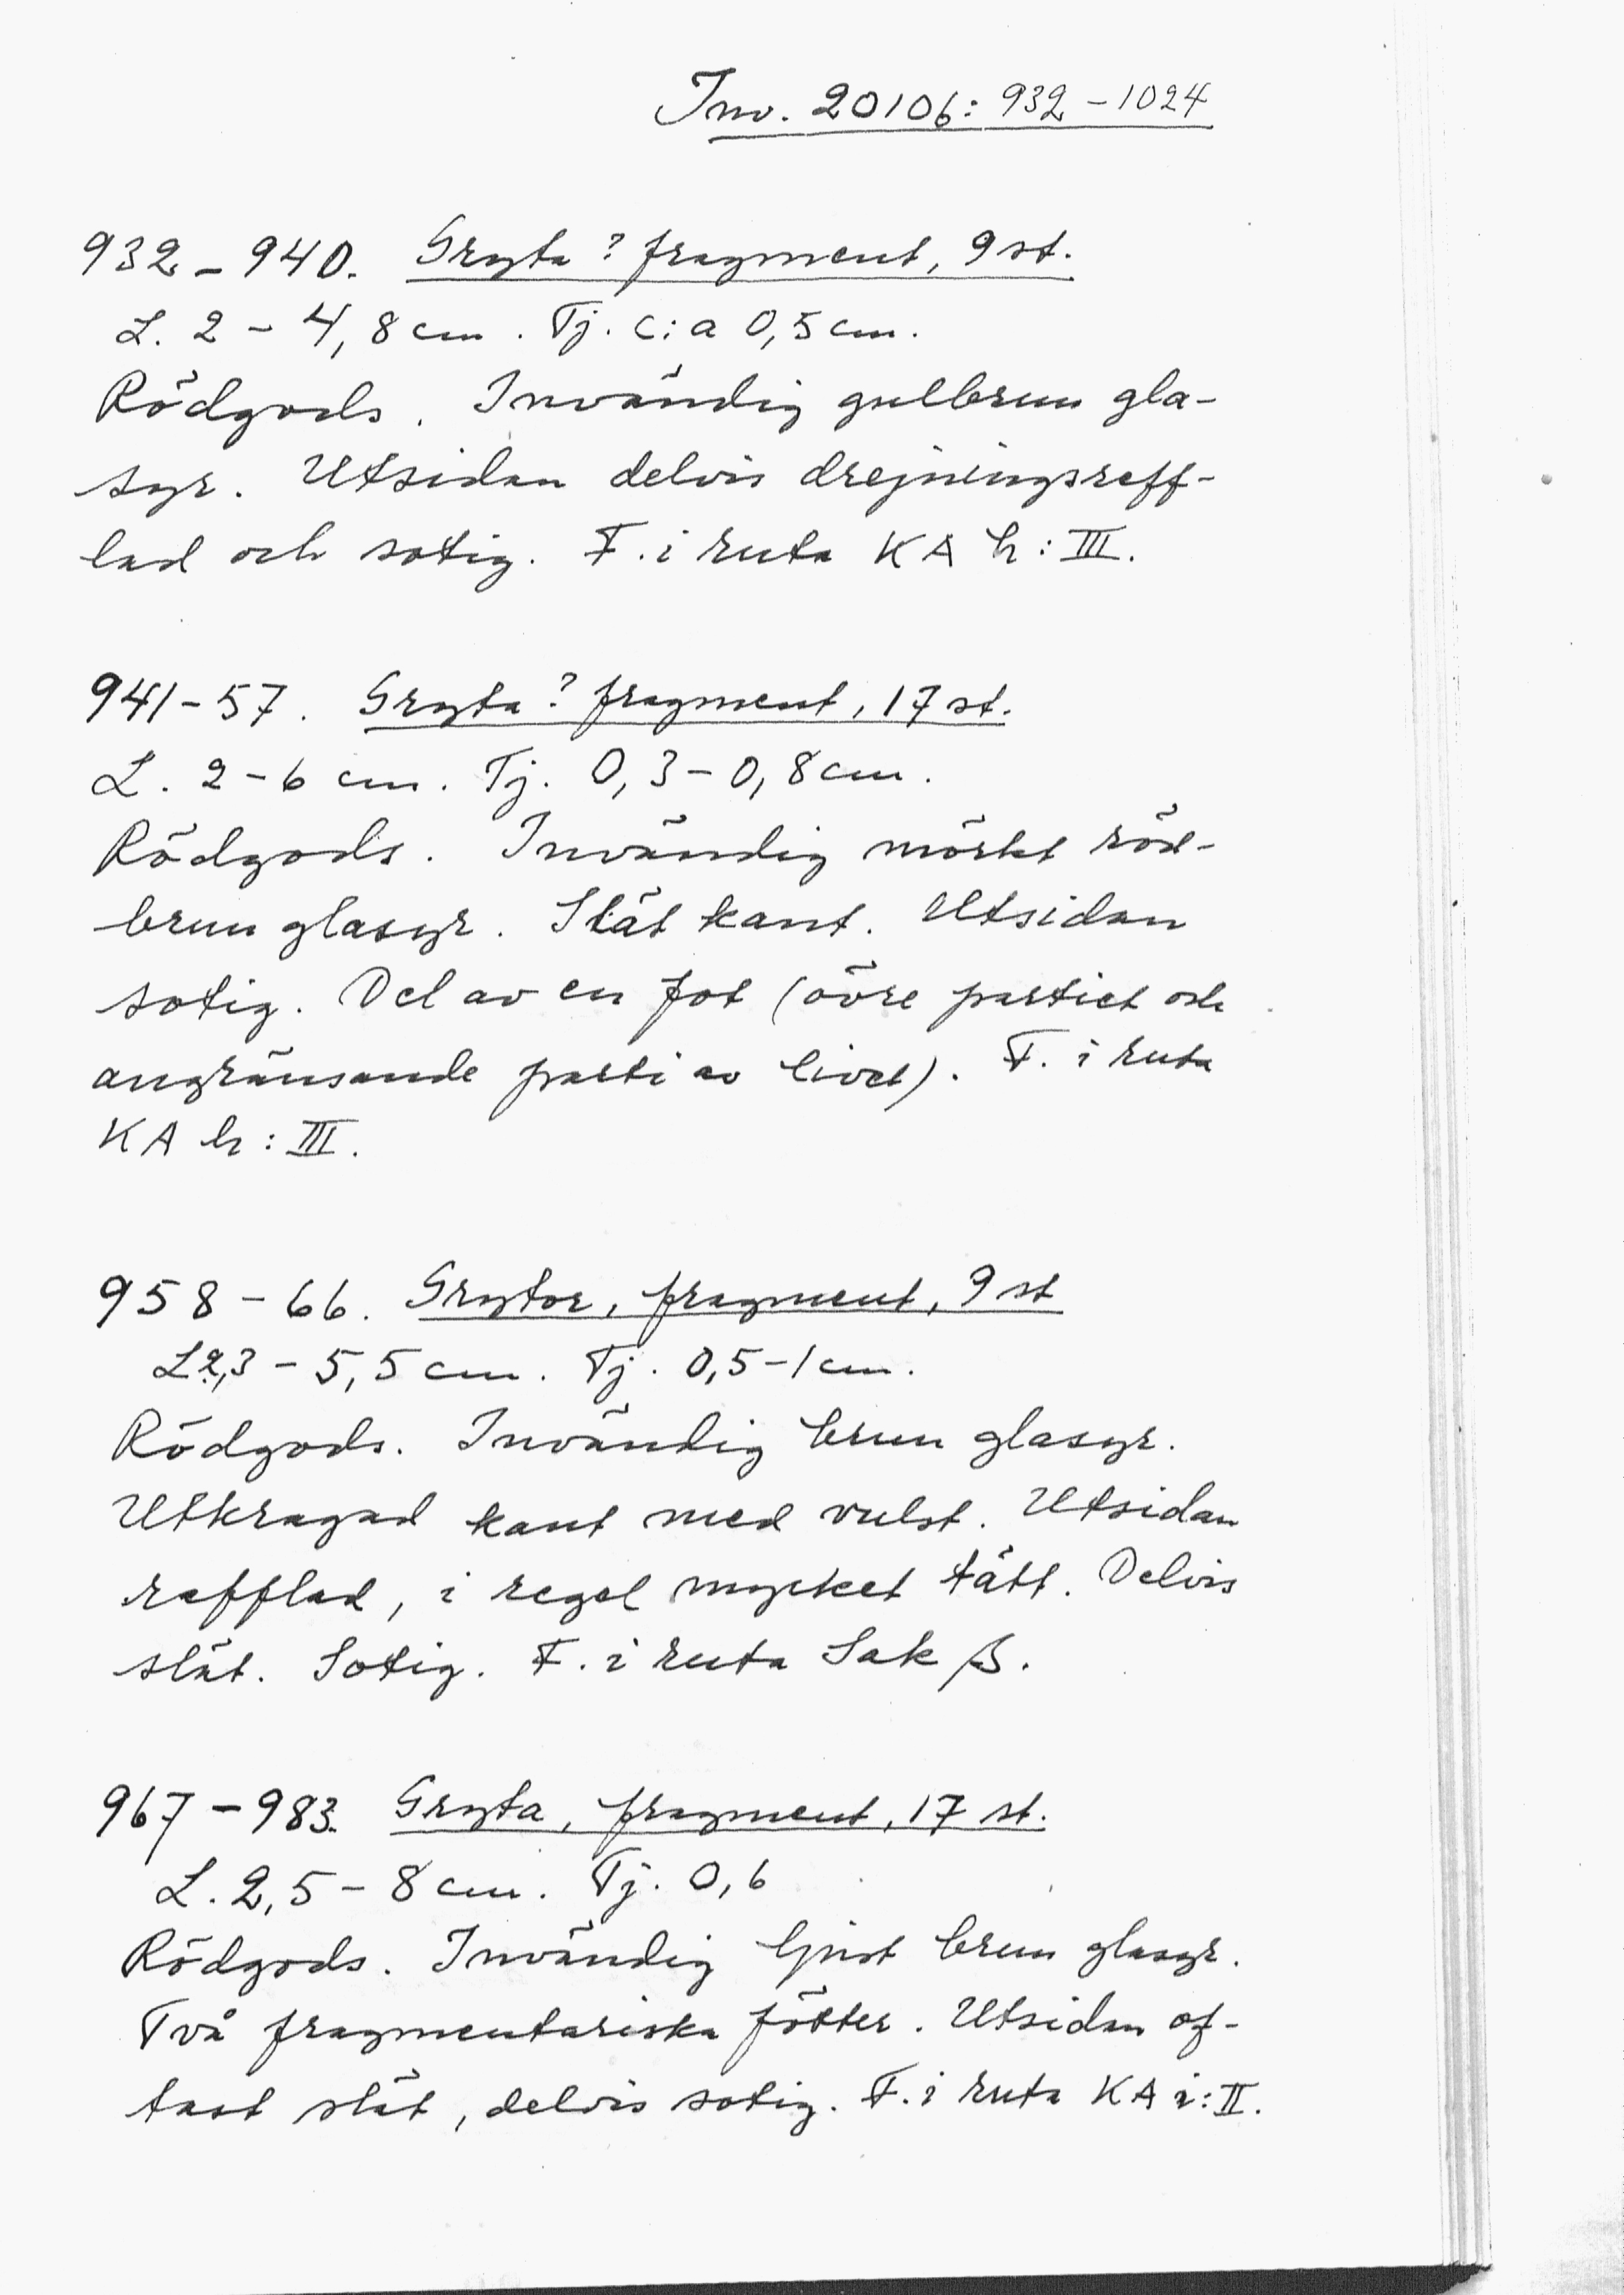 Inv. 20106: 932-1024
932-940. Gryta? fragment, 9 st.
L. 2-4,8 cm. Tj. c:a 0,5 cm.
Rödgods. Invändig gulbrun gla-
syr. Utsidan delvis drejningsreff-
lad och sotig. F. i ruta KA h: III.
941-57. Gryta? fragment, 17 st.
L. 2-6 cm. Tj. 0,3-0,8 cm.
Rödgods. Invändig mörkt röd-
brun glasyr. Slät kant. Utsidan
sotig. Del av en fot (övre partiet och
angränsande parti av livet). F. i ruta
KA h: III.
958-66. Grytor, fragment, 9 st
L. 2,3-5,5 cm. Tj. 0,5-1 cm.
Rödgods. Invändig brun glasyr.
Utkragad kant med vulst. Utsidan
refflad, i regel mycket tätt. Delvis
slät. Sotig. F. i ruta Sak β.
967-983. Gryta, fragment, 17 st.
L. 2,5-8 cm. Tj. 0,6
Rödgods. Invändig ljust brun glasyr.
Två fragmentariska fötter. Utsidan of-
tast slät, delvis sotig. F. i ruta KA i: II.